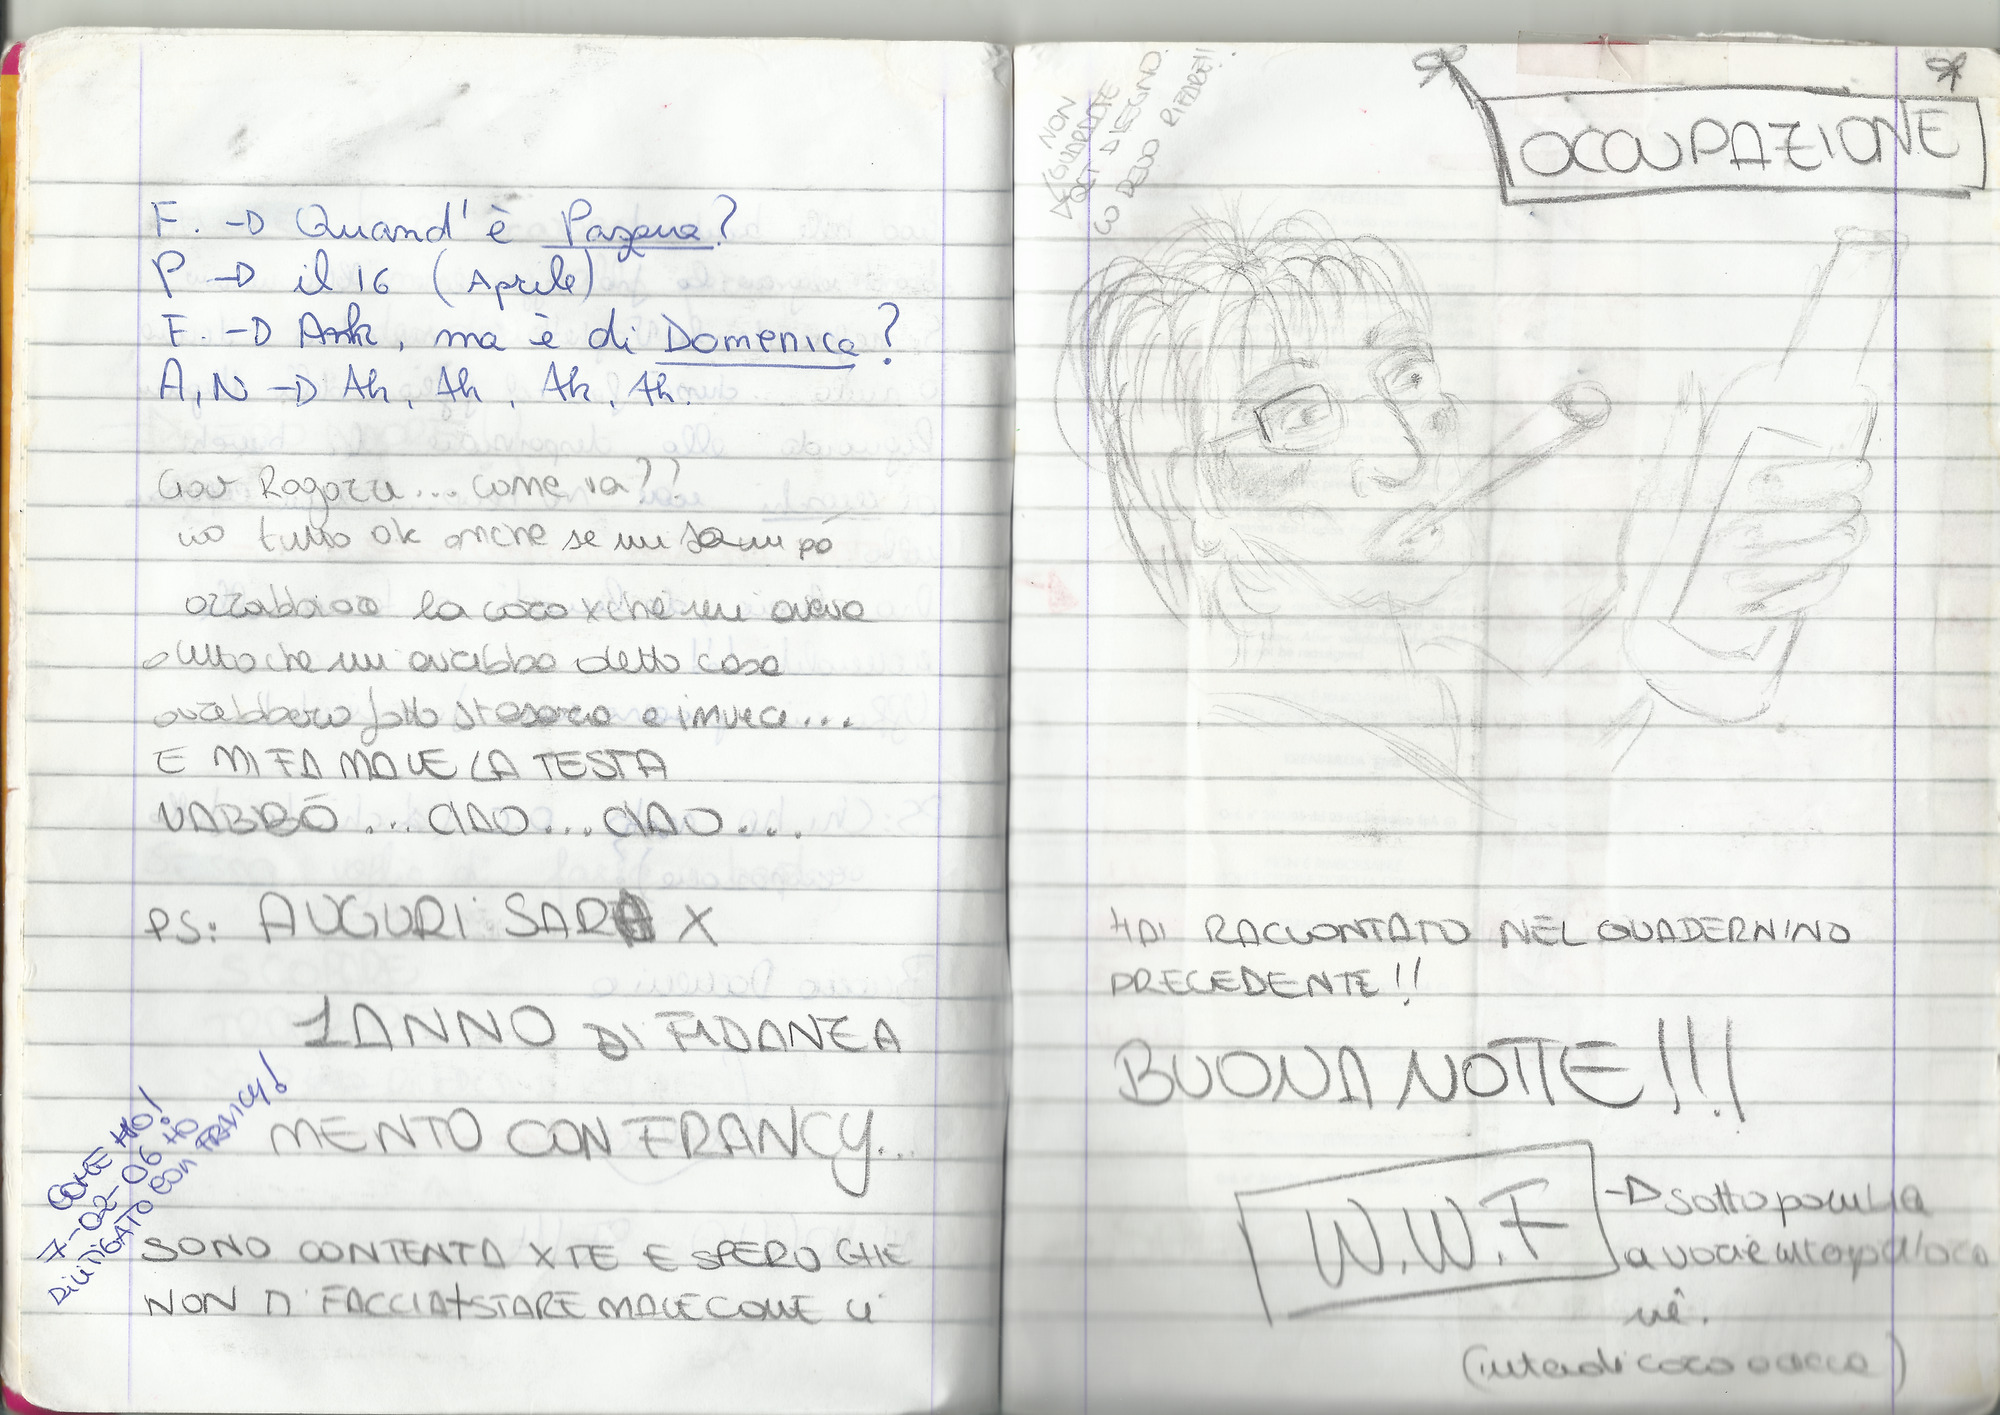 F. → Quand'è Pasqua?
P → il 16 (Aprile)
F. → Anh, ma è di Domenica?
A, N → Ah, Ah, Ah, Ah.
Ciao Ragazzi... come va??
io tutto ok anche se mi fa un pò
arrabbiare la coca xche mi aveva
detto che mi avrebbe detto cosa
avrebbero fatto stasera e invece...
E MI FA MALE LA TESTA
VABBÒ... CIAO... CIAO...
PS: AUGURI SARA X
1 ANNO DI FIDANZA
MENTO CON FRANCY...
COME NO!
7-02-06 HO
LITIGATO CON FRANCY!
SONO CONTENTA X TE E SPERO CHE
NON TI FACCIA + STARE MALE COME CI
NON
GUARDATE
QST DISEGNO.
LO DEVO RIFARE!!
OCCUPAZIONE
HAI RACCONTATO NEL QUADERNINO
PRECEDENTE!!
BUONA NOTTE!!!
W.W.F → sotto
a voi